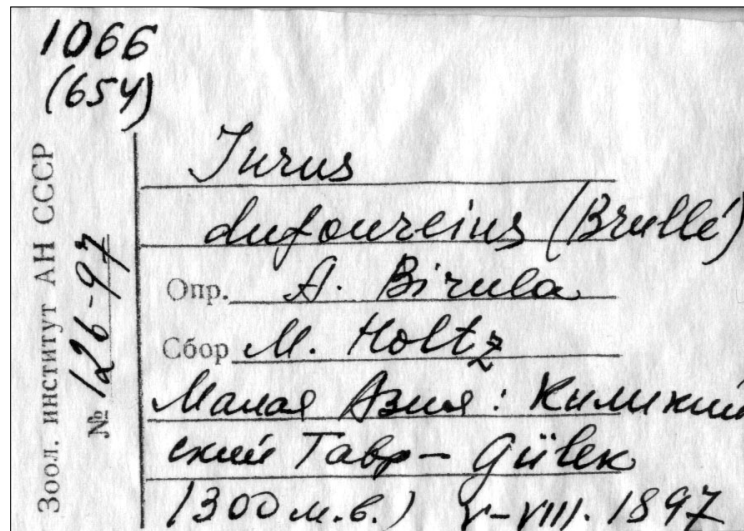 1066
(654)
Зоол. институт АН СССР
№ 126-97
Iurus
dufoureius (Brullé)
Опр. A. Birula
Сбор M. Holtz
Малая Азия: Киликий
ский Тавр - Gülek
1300 м.в.) V-VIII. 1897